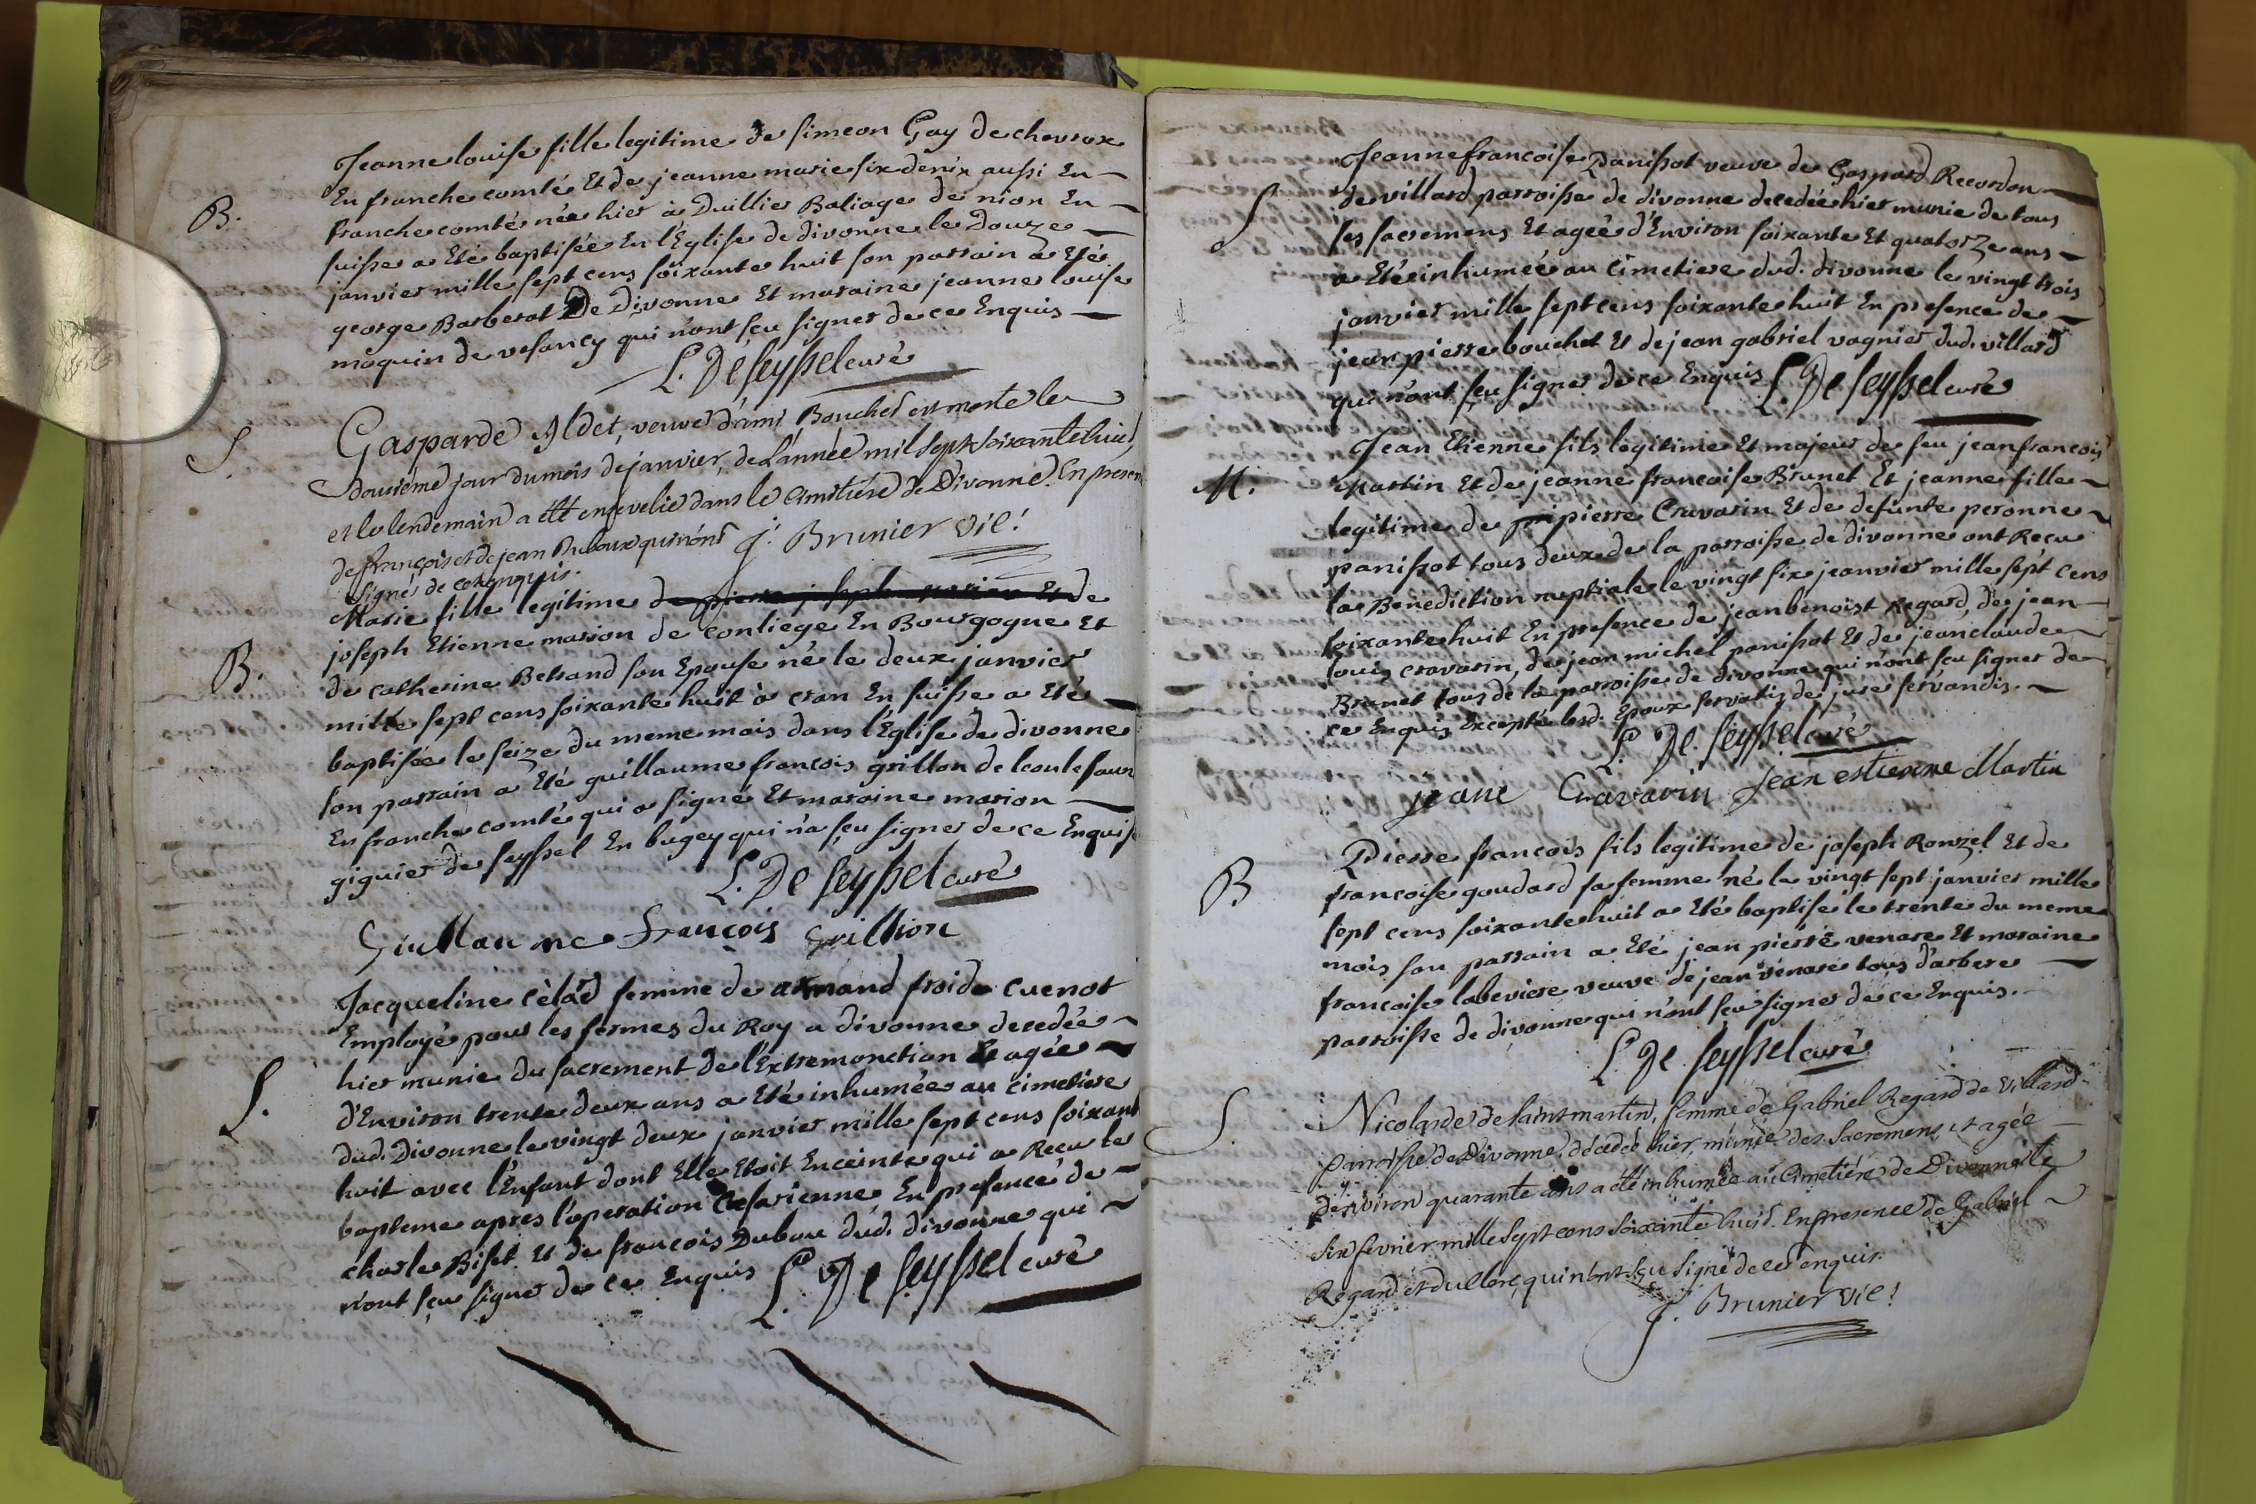 B.
Jeanne louise fille legitime de simeon Gay de chevrox
En franche comté Et de jeanne marie six denix aussi En
franche comté née hier à Duillier Baliage de nion En
suisse a Eté baptisée En l'Eglise de divonne le Douze
janvier mille sept cens soixante huit son parrain a Eté
george Barberat De Divonne Et maraine jeanne louise
maquin de vesancy qui n'ont seu signer de ce Enquis
L. De seyssel curé
S.
Gasparde Aldet, veuve d'aimé Bouchet est morte le
douzième jour du mois de janvier, de l'année mil sept soixante huit,
et le lendemain a été ensevelie dans le Cimetière de Divonne. En presen
de françois et de jean Duboux qui n'ont
signé de ce enquis.
j. Brunier vic!
B.
Marie fille legitime de pierre joseph marion Et de
joseph Etienne marion de conliege En Bourgogne Et
de catherine Betrand son Epouse né le deux janvier
mille sept cens soixante huit à cran En suisse a Eté
baptisée le seize du meme mois dans l'Eglise de divonne
son parrain a Eté guillaume françois grillon de
En franche comté qui a signé Et maraine marion
giguier de seyssel En bugey qui n'a seu signer de ce Enquise
L. De seyssel curé
Guillaume françois Grillion
S.
Jacqueline célad femme de armand froide cuenot
Employé pour les fermes du Roy a divonne decedée
hier munie du sacrement de l'Extremonction Et agée
d'Environ trente deux ans a Eté inhumée au cimetiere
dud. Divonne le vingt deux janvier mille sept cens soixant
huit avec l'Enfant dont Elle Etoit Enceinte qui a Recu le
bapteme apres l'operation Cesarienne En presence de
charle Biset Et de francois Dubou dud. divonne qui
n'ont seu signer de ce Enquis L. De seyssel curé
S
Jeanne francoise Panissot veuve de Gaspard Recordon
de villard parroisse de divonne decedée hier munie de tous
les sacremens Et ageé d'Environ soixante Et quatorze ans
a Eté inhumée au cimetiere dud. divonne le vingt trois
janvier mille sept cens soixante huit En presence de
jean pierre bouchet Et de jean gabriel vagnier dud. villard
qui n'ont seu signer de ce Enquis L. De seyssel curé
M.
Jean Etienne fils legitime Et majeur de feu jean francois
Martin Et de jeanne francoise Brunet Et jeanne fille
legitime de pierre Cravarin Et de defunte peronne
panissot tous deux de la parroisse de divonne ont Recu
la Benediction nuptiale le vingt six jeanvier mille sept cens
soixante huit En presence de jean benoist Regard, de jean
louis cravarin, de jean michel panissot Et de jean claude
Brunet tous de la parroisse de divonne qui n'ont seu signer de
ce Enquis Excepté lesd. Epoux servatis de jure servandis.
L. De seyssel curé
jeane Cravarin Jean estienne Martin
B
Pierre francois fils legitime de joseph Rouzel Et de
francoise goudard sa femme né le vingt sept janvier mille
sept cens soixante huit a Eté baptisé le trente du meme
mois son parrain a Eté jean pierre venare Et maraine
francoise labeviere veuve de jean venare tous d'arbere
parroisse de divonne qui n'ont seu signer de ce Enquis.
L. De seyssel curé
S.
Nicolarde de saint martin, femme de Gabriel Regard de Villard
Parroisse de Divonne, décédée hier, munie des Sacremens et agée
d'environ quarante ans a été inhumée au Cimetière de Divonne le
six fevrier mille sept cens soixante huit. En presence de Gabriel
Regard et qui n'ont sçu signé de ce enquis.
j. Brunier vic!